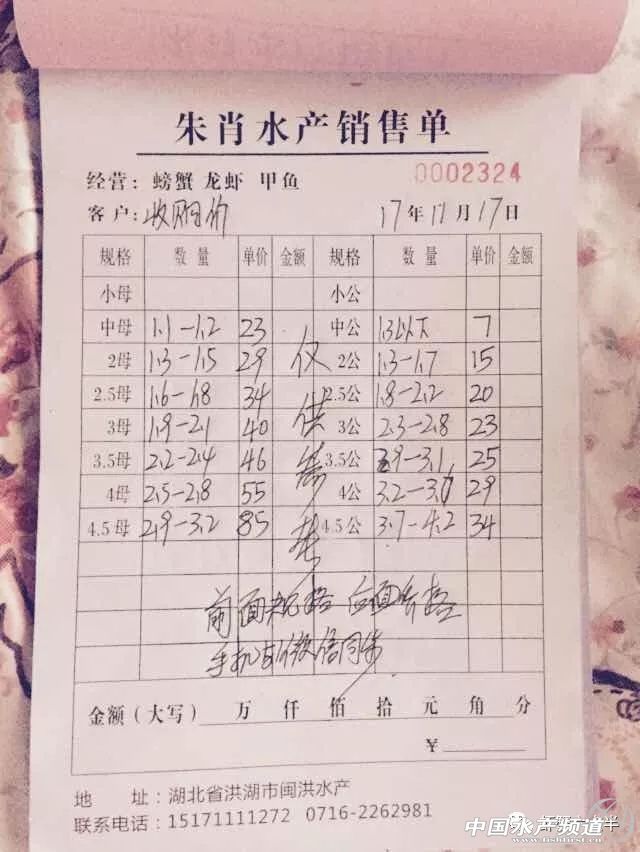 朱肖水产销售单
经营: 螃蟹 龙虾 甲鱼 0002324
客户: 收购价 17年11月17日
规格 数量 单价 金额 规格 数量 单价 金额
小母 小公
中母 1.1-1.2 23 中公 1.3以下 7
2母 1.3-1.5 29 仅 2公 1.3-1.7 15
2.5母 1.6-1.8 34 供 2.5公 1.8-2.2 20
3母 1.9-2.1 40 3公 2.3-2.8 23
3.5母 2.2-2.4 46 参 3.5公 2.9-3.1 25
4母 2.5-2.8 55 4公 3.2-3.6 29
4.5母 2.9-3.2 85 考 4.5公 3.7-4.2 34
前面规格 后面价格
手机与微信同步
金额(大写) 万 仟 佰 拾 元 角 分
¥
地 址: 湖北省洪湖市闽洪水产
联系电话: 15171111272 0716-2262981
中国水产频道
www.fishfirst.cn